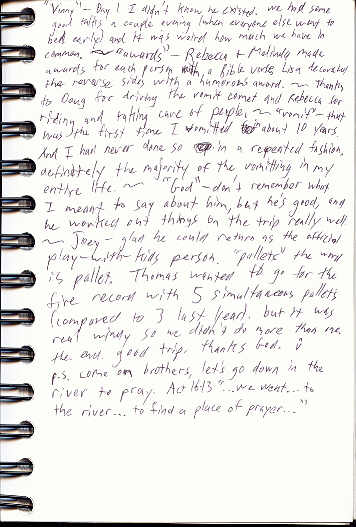 "Vinny" - Boy! I didn't know he existed. we had some
good talks a couple evenings when everyone else went to
bed early and it was weird how much we have in
common. ~ "awards" - Rebecca + Melinda made
awards for each person with a Bible verse, Lisa decorated
the reverse sides with a humorous award. ~ Thanks
to Doug for driving the vomit comet and Rebecca for
riding and taking care of people. ~ "vomit" - that
was the first time I vomitted in about 10 years.
And I had never done so in a repeated fashion.
definitely the majority of the vomitting in my
entire life. ~ "God" - don't remember what
I meant to say about him, but he's good, and
he worked out things on the trip really well.
~ Joey - glad he could return as the official
play-with-kids person. "pallets" the word
is pallet. Thomas wanted to go for the
fire record with 5 simultaneous pallets
(compared to 3 last year). but it was
real windy so we didn't do more than one.
the end. good trip. thanks God.
p.s. come on brothers, let's go down in the
river to pray. Act 16:13 "...we went... to
the river... to find a place of prayer..."